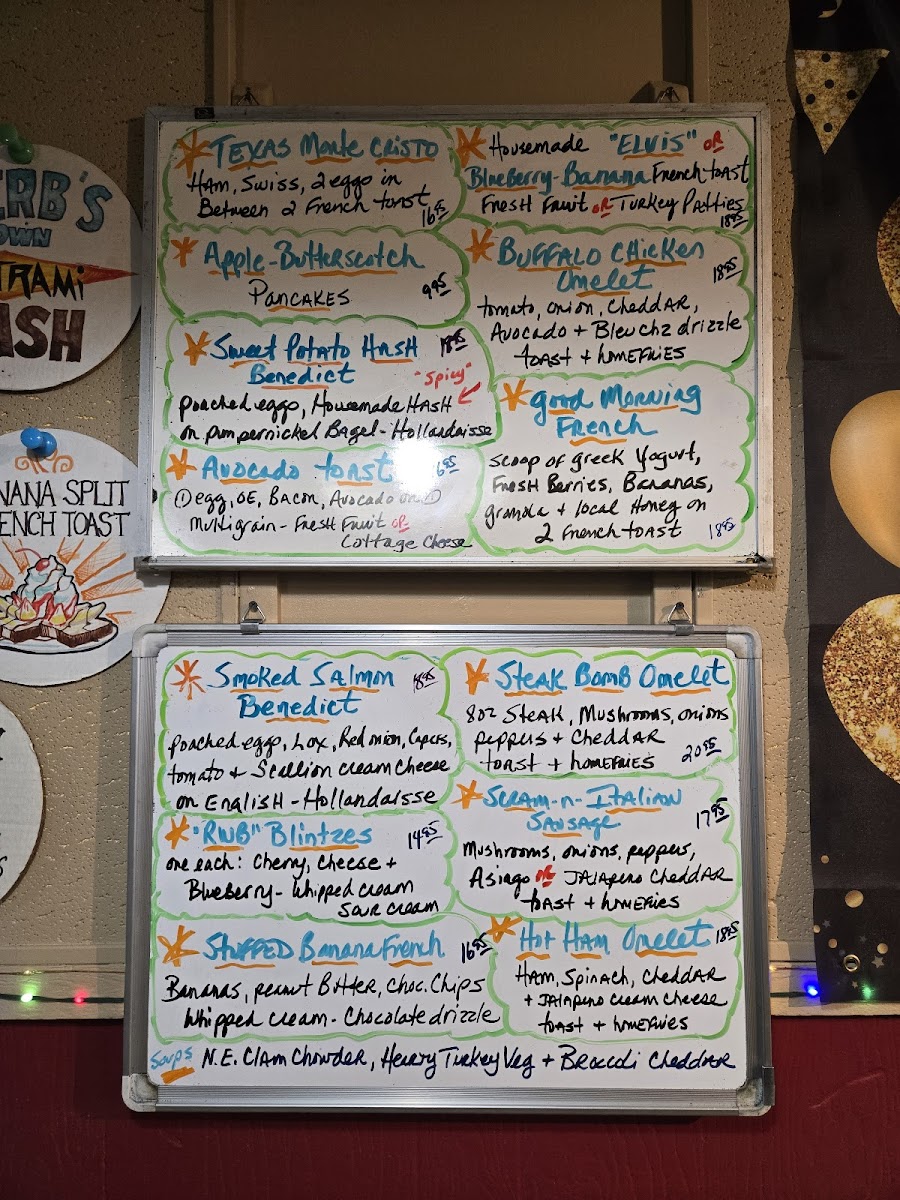 ERB'S
OWN
TRAMi
ASH
NANA SPLIT
ENCH TOAST
TEXAS Monte CRISTO
HAM, SWISS, 2 eggs in
Between 2 French toast
16.95
Apple-Butterscotch
PANCAKES 9.95
Sweet Potato HASH 18.95
Benedict
"Spicy"
poached eggs, Housemade HASH
on pumpernickel Bagel - Hollandaisse
Avocado toast
① egg, OE, Bacon, Avocado on
Multigrain - Fresh Fruit OR
Cottage Cheese
Housemade "ELVIS" OR
Blueberry-Banana French toast
Fresh Fruit OR Turkey Patties
18.95
BUFFALO CHICKEN
Omelet 18.95
tomato, onion, CHEDDAR,
Avocado + Bleu chz drizzle
toast + homefries
good Morning
French
scoop of greek Yogurt,
Fresh Berries, Bananas,
granola + local Honey on
2 French toast 18.95
Smoked Salmon 18.95
Benedict
poached eggs, Lox, Red onion, Capers,
tomato + Scallion cream cheese
on ENGLISH - Hollandaisse
"RWB" Blintzes 14.95
one each: Cherry, Cheese +
Blueberry - whipped cream
sour cream
STUFFED Banana French 16.95
Bananas, peanut Butter, choc. Chips
Whipped cream - Chocolate drizzle
STEAK BOMB Omelet
8oz STEAK, Mushrooms, onions
peppers + CHEDDAR
toast + homefries 20.95
SCRAM-n-ITALIAN
SAUSAGE 17.95
Mushrooms, onions, peppers,
Asiago OR JALAPENO CHEDDAR
toast + homefries
Hot HAM Omelet 18.95
HAM, Spinach, CHEDDAR
+ JALAPENO cream cheese
toast + homefries
Soups N.E. Clam Chowder, Hearty Turkey Veg + Broccoli CHEDDAR